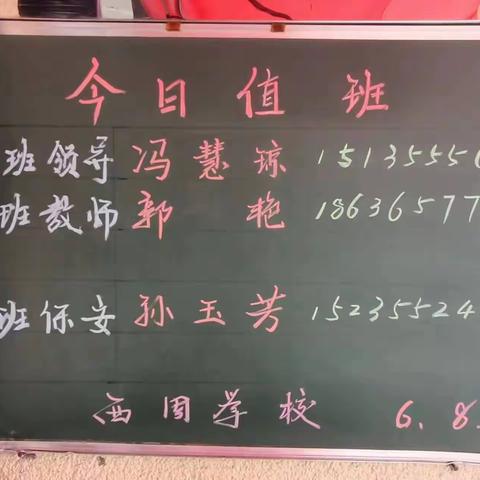 今日值班
班领导 冯慧琼 151355506
班教师 郭艳 18636577
班保安 孙玉芳 152355524
西周学校 6.8.